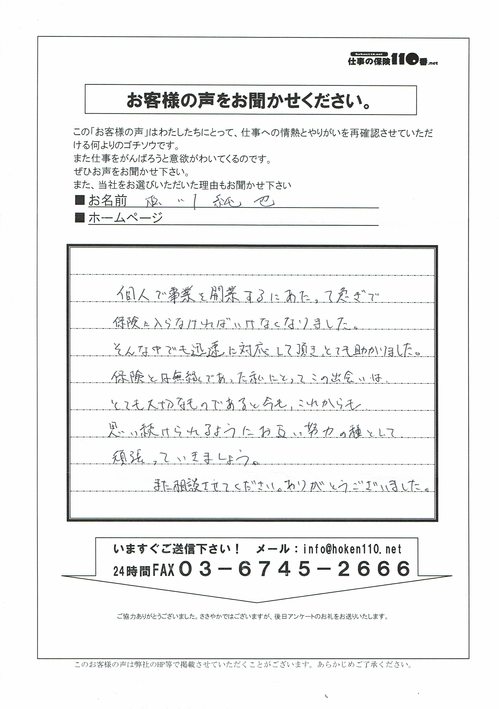 仕事の保険110番.net
お客様の声をお聞かせください。
この「お客様の声」はわたしたちにとって、仕事への情熱とやりがいを再確認させていただ
ける何よりのゴチソウです。
また仕事をがんばろうと意欲がわいてくるのです。
ぜひお声をお聞かせ下さい。
また、当社をお選びいただいた理由もお聞かせ下さい
■お名前
■ホームページ
個人で事業を開業するにあたって急ぎで
保険に入らなければいけなくなりました。
そんな中でも迅速に対応して頂きとても助かりました。
保険とは無縁であった私にとってこの出会いは、
とても大切なものであると今も、これからも
思い続けられるようにお互い努力の種として
頑張っていきましょう。
また相談させてください。ありがとうございました。
いますぐご送信下さい！ メール：info@hoken110.net
24時間FAX 03－6745－2666
ご協力ありがとうございました。ささやかではございますが、後日アンケートのお礼をお送りいたします。
このお客様の声は弊社のHP等で掲載させていただくことがございます。あらかじめご了承ください。